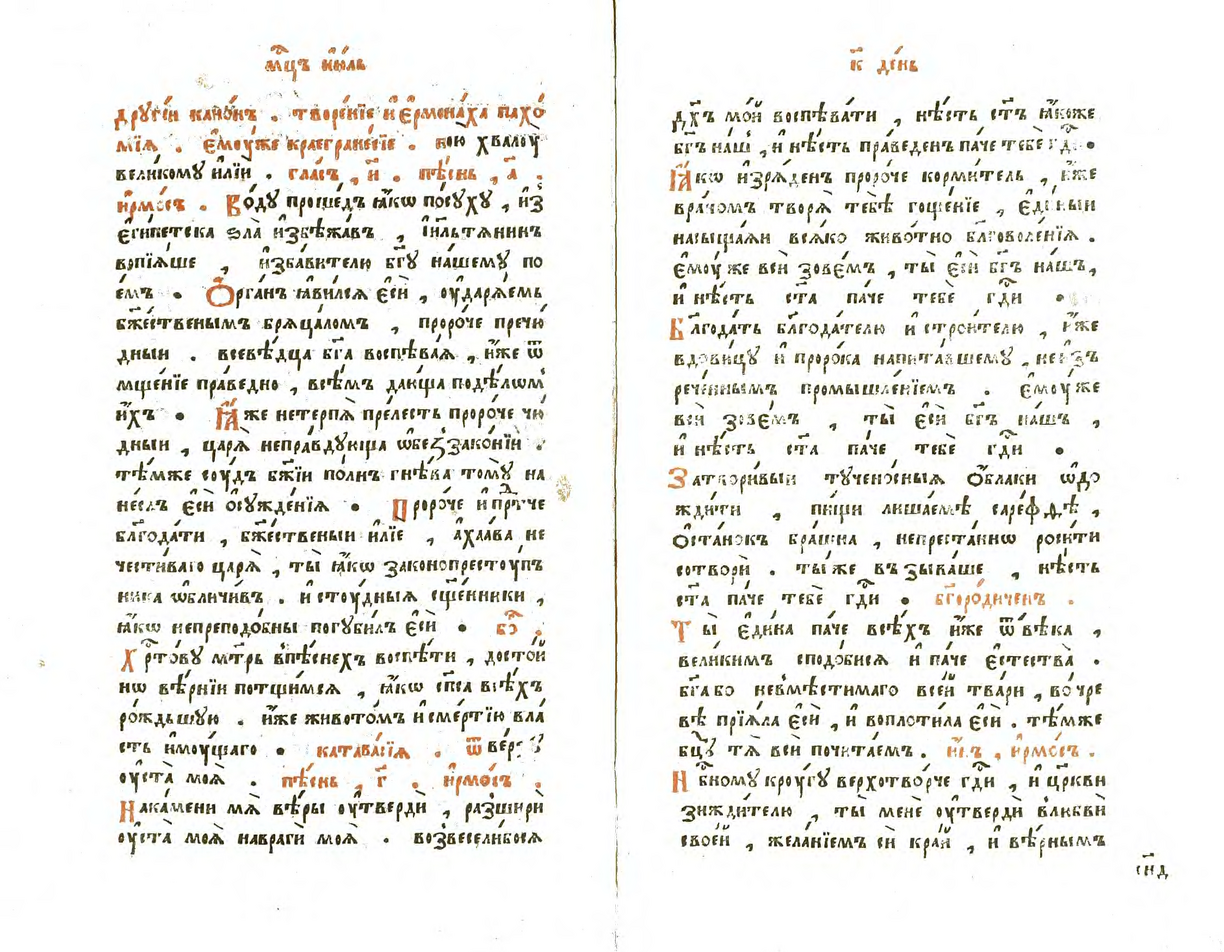 мц҃ъ июль
другїи канѡнъ . творенїе и҆ ермонаха пахо
мїѧ . емоуже краегранесїе . пою хвалоу
великому илїи . гласъ , и҃ . пѣснь , а҃ .
ирмосъ . Воду прошедъ ꙗкѡ посуху , из
египетска ѕла избѣжавъ , їил҃ьтѧнинъ
вопїѧше , избавителю бг҃у нашему по
емъ . Ѻрганъ ꙗвилсѧ еси , оударѧемь
бж҃ественымъ брѧцаломъ , пророче пречю
дныи . всевѣдца бг҃а воспѣваѧ , иже ѿ
мщенїе праведно , всѣмъ дающа подѣлѡм
ихъ . Ꙗже нетерпѧ прелесть пророче чю
дныи , царѧ неправдующа ѡбеззаконїи .
тѣмже соудъ бж҃їи полнъ гнѣва тому на
неслъ еси ѻсужденїѧ . Пророче и прⷣтче
благодати , бж҃ественыи илїе , ахаава не
честиваго царѧ , ты ꙗкѡ законопрестоупъ
ника ѡбличивъ . и стоудныѧ сщ҃енники ,
ꙗкѡ непреподобны погубилъ еси . бо҃ .
Хрⷭ҇тову мт҃рь впѣснехъ воспѣти , достой
нѡ вѣрнїи потщимсѧ , ꙗкѡ сп҃са всѣхъ
рождьшую . иже животомъ и смертїю вла
сть имоущаго . катавасїѧ . ѿверзу
оуста моѧ . пѣснь , г҃ . ирмосъ .
Накамени мѧ вѣры оутверди , разшири
оуста моѧ навраги моѧ . возвеселибосѧ
к҃ день
дх҃ъ мой воспѣвати , нѣсть ст҃ъ ꙗкоже
бг҃ъ наш , и нѣсть праведенъ паче тебе гдⷭ҇и .
Ꙗкѡ изрѧденъ пророче кормитель , иже
врачомъ творѧ тебѣ гощенїе , единыи
насыщаѧи всѧко животно благоволенїѧ .
емоуже вси зовемъ , ты еси бг҃ъ нашъ ,
и нѣсть ст҃а паче тебе гдⷭ҇и .
Благодать благодателю и строителю , иже
вдовицу и пророка напитавшему , неиз
реченнымъ промышленїемъ . емоуже
вси зовемъ , ты еси бг҃ъ нашъ ,
и нѣсть ст҃а паче тебе гдⷭ҇и .
Затворивыи тученосныѧ ѻблаки ѡдо
ждити , пищи лишаемѣ сарефѳѣ ,
ѻстанокъ брашна , непрестаннѡ росити
сотвори . тыже възываше , нѣсть
ст҃а паче тебе гдⷭ҇и . бг҃ородиченъ .
Ты едина паче всѣхъ иже ѿ вѣка ,
великимъ сподобисѧ и паче естества .
бг҃а бо невмѣстимаго всей твари , во чре
вѣ прїѧла еси , и воплотила еси . тѣмже
бц҃у тѧ вси почитаемъ . ин҃ъ , ирмосъ .
Нб҃ному кроугу верхотворче гдⷭ҇и , и цр҃кви
зиждителю , ты мене оутверди влюбви
своей , желанїемъ си край , и вѣрнымъ
сн҃д